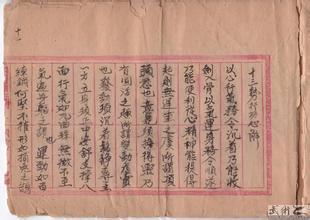 十三勢行功心解
以心行氣務令沉着乃能收
斂入骨以氣運身務令順遂
乃能便利從心精神能提得
起則無遲重之虞所謂頂
頭懸也意氣須換得靈乃
有圓活之趣所謂變動虛實
也發勁須沉着鬆靜專主
一方立身須中正安舒支撐八
面行氣如九曲珠無微不至
氣遍身軀之謂也運動如百
鍊鋼何堅不摧形如搏兔之鶻
十一